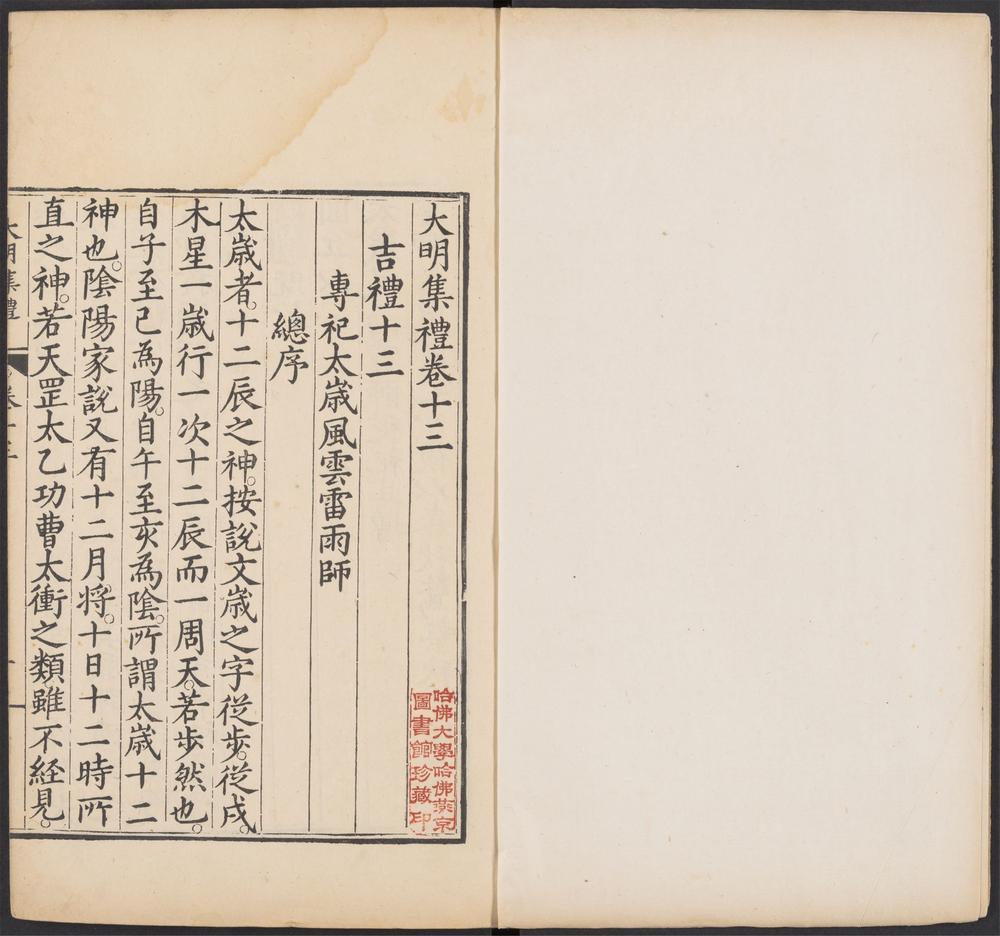 大明集禮卷十三
吉禮十三
專祀太歲風雲雷雨師
總序
太歲者。十二辰之神。按說文歲之字從步。從戌。
木星一歲行一次十二辰而一周天。若步然也。
自子至巳為陽。自午至亥為陰。所謂太歲十二
神也。陰陽家說又有十二月將。十日十二時所
直之神。若天罡太乙功曹太衝之類雖不經見。
大明集禮 卷十三 一
哈佛大學哈佛燕京
圖書館珍藏印